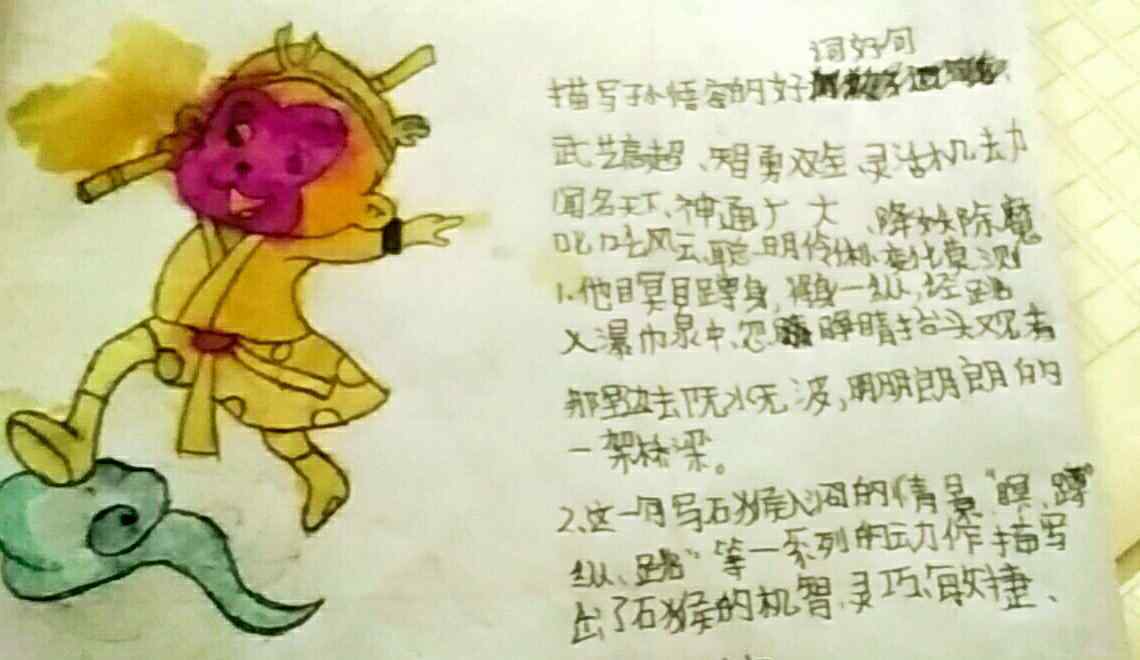 词好句
描写孙悟空的好
武艺高超、智勇双全、灵活机动
闻名天下、神通广大、降妖除魔
叱咤风云、聪明伶俐、变化莫测
1.他瞑目蹲身,将身一纵,径跳
入瀑布泉中,忽睁睛抬头观看
那里边去原无水无波,明明朗朗的
一架桥梁。
2.这一句写石猴入洞的情景"瞑、蹲
纵、跳"等一系列的动作描写
出了石猴的机智、灵巧、敏捷、